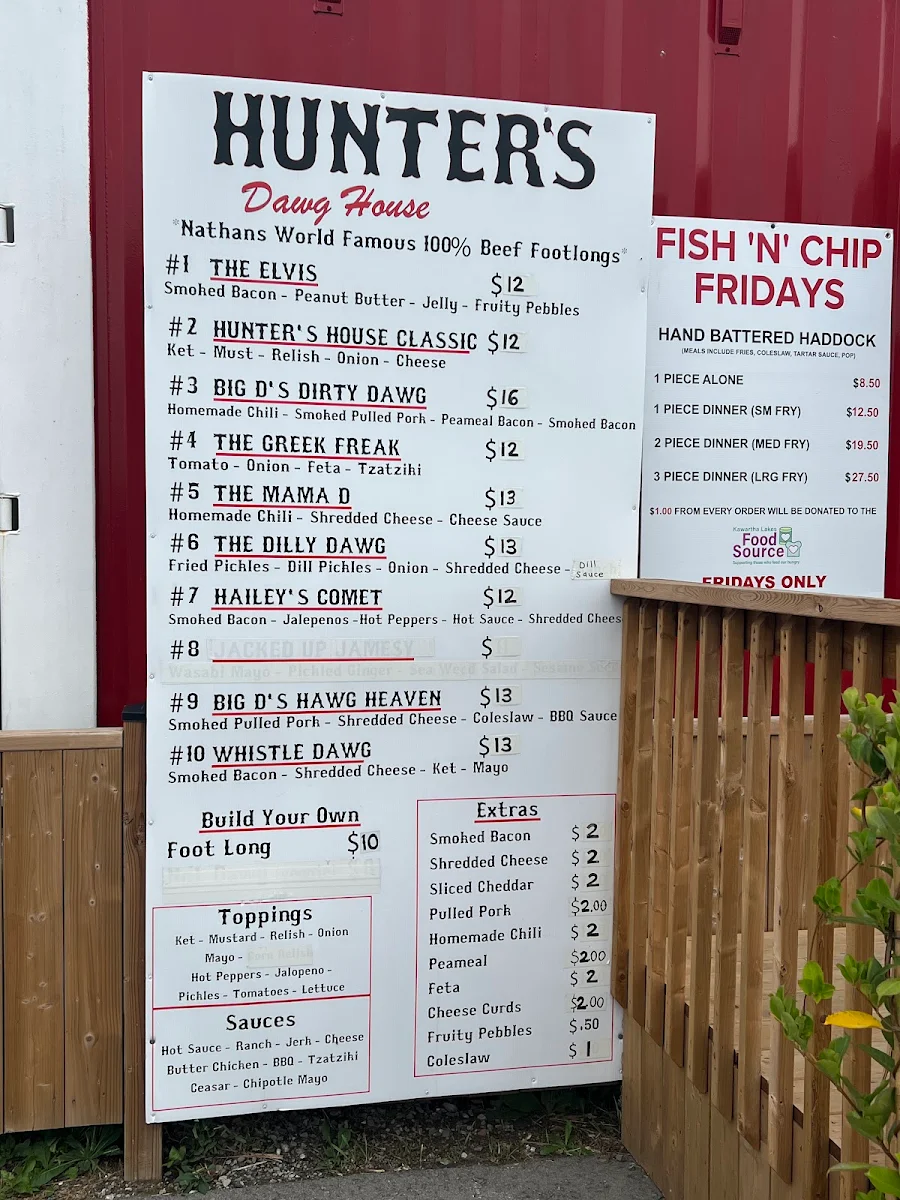 HUNTER'S
Dawg House
*Nathans World Famous 100% Beef Footlongs*
#1 THE ELVIS $12
Smoked Bacon - Peanut Butter - Jelly - Fruity Pebbles
#2 HUNTER'S HOUSE CLASSIC $12
Ket - Must - Relish - Onion - Cheese
#3 BIG D'S DIRTY DAWG $16
Homemade Chili - Smoked Pulled Pork - Peameal Bacon - Smoked Bacon
#4 THE GREEK FREAK $12
Tomato - Onion - Feta - Tzatziki
#5 THE MAMA D $13
Homemade Chili - Shredded Cheese - Cheese Sauce
#6 THE DILLY DAWG $13
Fried Pickles - Dill Pickles - Onion - Shredded Cheese - Dill Sauce
#7 HAILEY'S COMET $12
Smoked Bacon - Jalepenos -Hot Peppers - Hot Sauce - Shredded Chees
#8 JACKED UP JAMESY $
Wasabi Mayo - Pickled Ginger - Sea Weed Salad - Sesame
#9 BIG D'S HAWG HEAVEN $13
Smoked Pulled Pork - Shredded Cheese - Coleslaw - BBQ Sauce
#10 WHISTLE DAWG $13
Smoked Bacon - Shredded Cheese - Ket - Mayo
Build Your Own
Foot Long $10
Toppings
Ket - Mustard - Relish - Onion
Mayo - Corn Relish
Hot Peppers - Jalopeno -
Pickles - Tomatoes - Lettuce
Sauces
Hot Sauce - Ranch - Jerk - Cheese
Butter Chicken - BBQ - Tzatziki
Ceasar - Chipotle Mayo
Extras
Smoked Bacon $2
Shredded Cheese $2
Sliced Cheddar $2
Pulled Pork $2.00
Homemade Chili $2
Peameal $2.00
Feta $2
Cheese Curds $2.00
Fruity Pebbles $.50
Coleslaw $1
FISH 'N' CHIP
FRIDAYS
HAND BATTERED HADDOCK
(MEALS INCLUDE FRIES, COLESLAW, TARTAR SAUCE, POP)
1 PIECE ALONE $8.50
1 PIECE DINNER (SM FRY) $12.50
2 PIECE DINNER (MED FRY) $19.50
3 PIECE DINNER (LRG FRY) $27.50
$1.00 FROM EVERY ORDER WILL BE DONATED TO THE
Kawartha Lakes
Food
Source
FRIDAYS ONLY